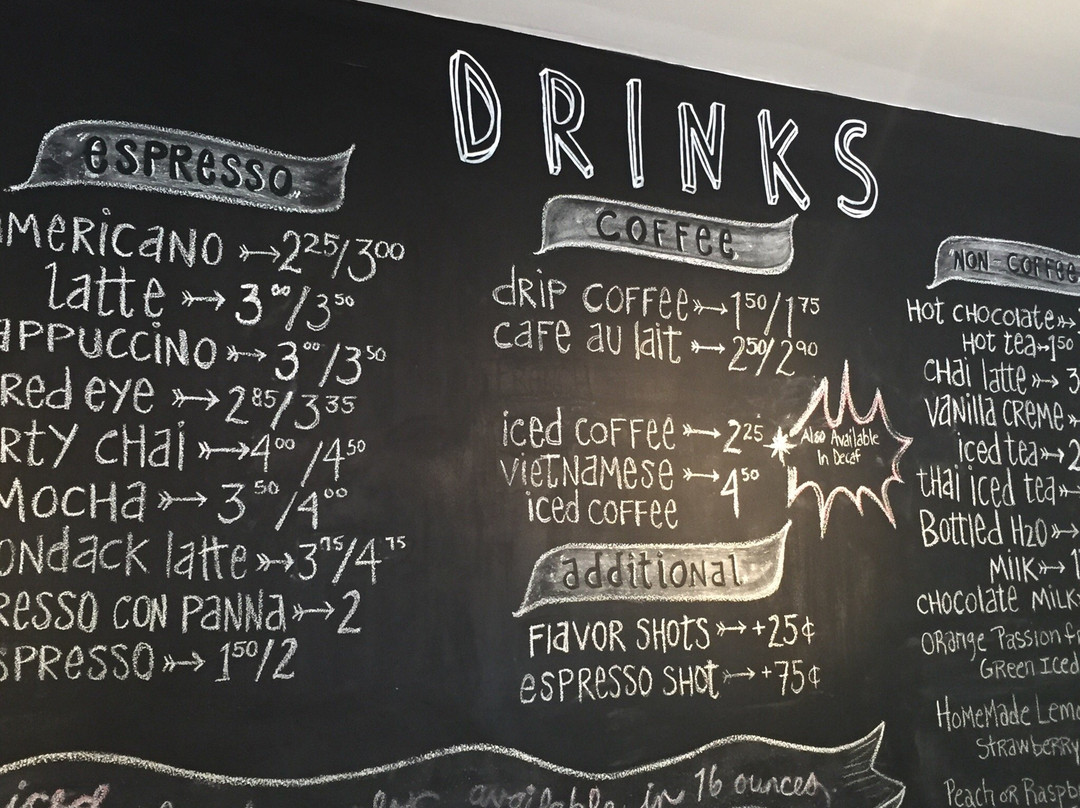 DRINKS
espresso
AMERICANO 2.25/3.00
latte 3.00/3.50
APPUCCINO 3.00/3.50
Red eye 2.85/3.35
RTY CHai 4.00/4.50
MOCHA 3.50/4.00
ONdack latte 3.75/4.75
RESSO CON PANNA 2
SPRESSO 1.50/2
COFFee
dRIP COFFee 1.50/1.75
CAFe AU lait 2.50/2.90
iced COFFee 2.25
VietNAMESE 4.50
iced COFFee
Also Available
In Decaf
additional
FlAVOR SHOTS +25¢
eSPRESSO SHOt +75¢
NON-COFFee
HOt CHOCOlAte
HOt teA 1.50
CHAi lAtte 3
VANillA CREMe
iced teA 2
tHAi iced teA
BOttled H2O
MilK 1
CHOCOlAte MilK
ORANge PASSiON
GReeN Iced
HOMeMAde
StRAwbeRRY
PeAcH OR
iced available in 16 ounces